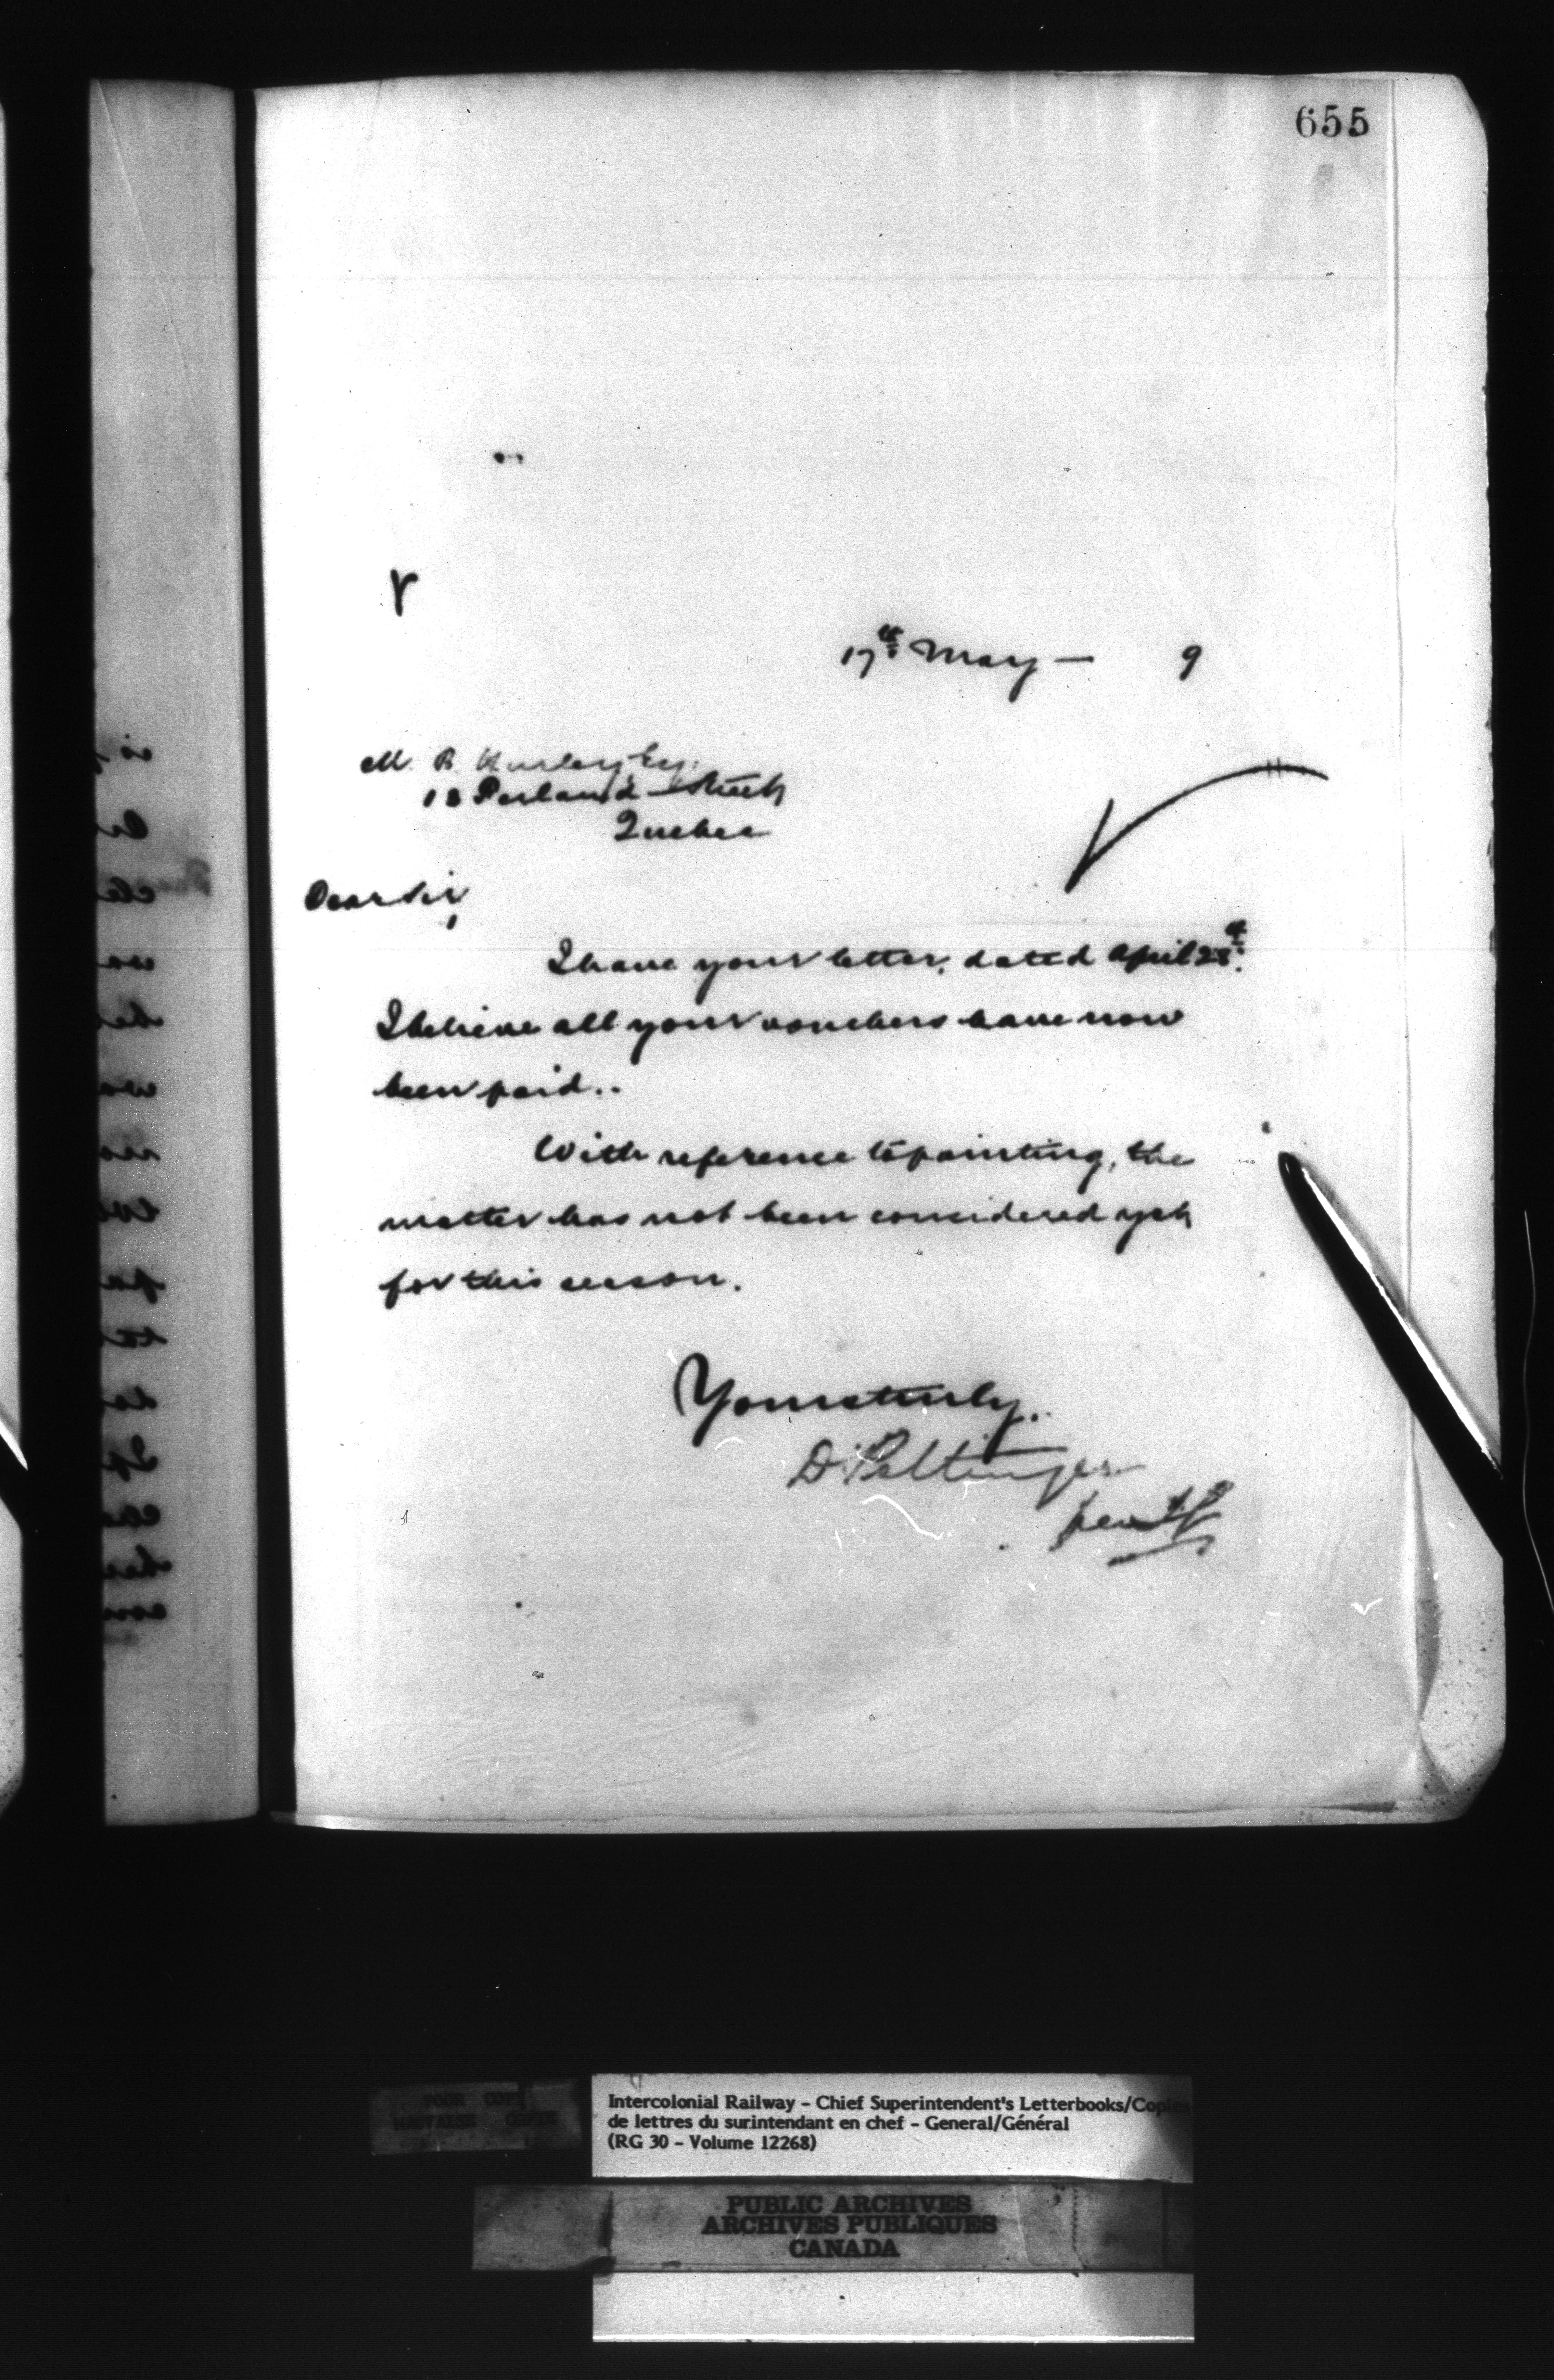 655
17th May — 9
M. B. Hurley Esq.
18 Street
Quebec
Dear Sir,
I have your letter, dated April 28th.
I believe all your vouchers have now
been paid..
With reference to painting, the
matter has not been considered yet
for this season.
Yours truly.
D. Pottinger
per
POOR COPY
MAUVAISE COPIE
Intercolonial Railway – Chief Superintendent's Letterbooks/Copies
de lettres du surintendant en chef – General/Général
(RG 30 – Volume 12268)
PUBLIC ARCHIVES
ARCHIVES PUBLIQUES
CANADA